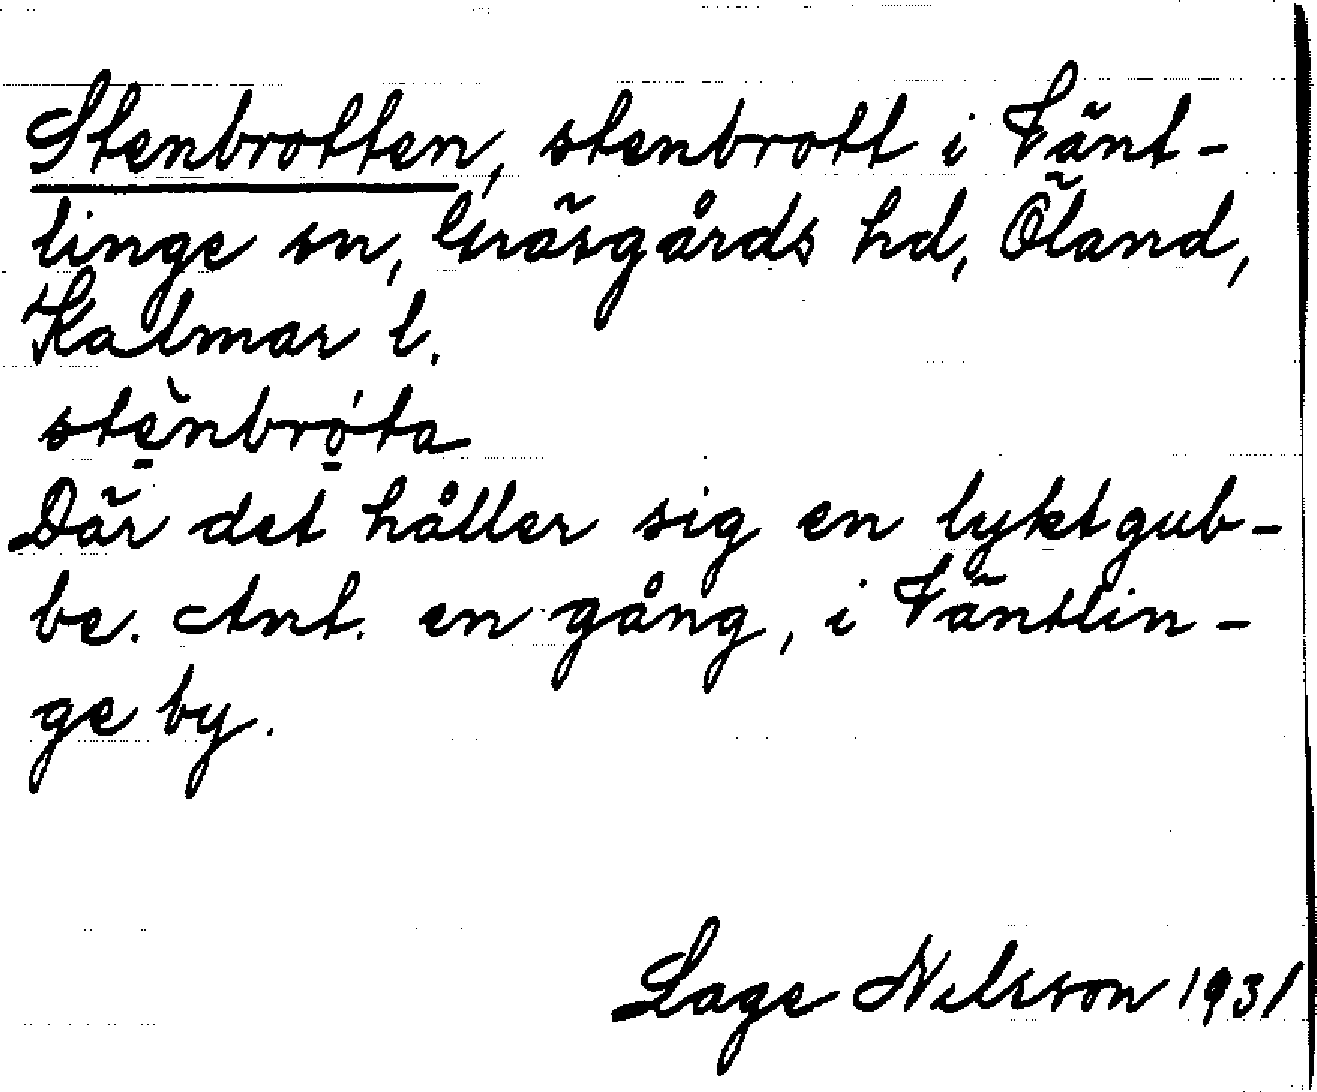 Stenbrotten, stenbrott i Vänt-
linge sn, Gräsgårds hd, Öland,
Kalmar l.
stè̱nbró̱ta
Där det håller sig en lyktgub-
be. Ant. en gång, i Väntlin-
ge by.
Lage Nilsson 1931